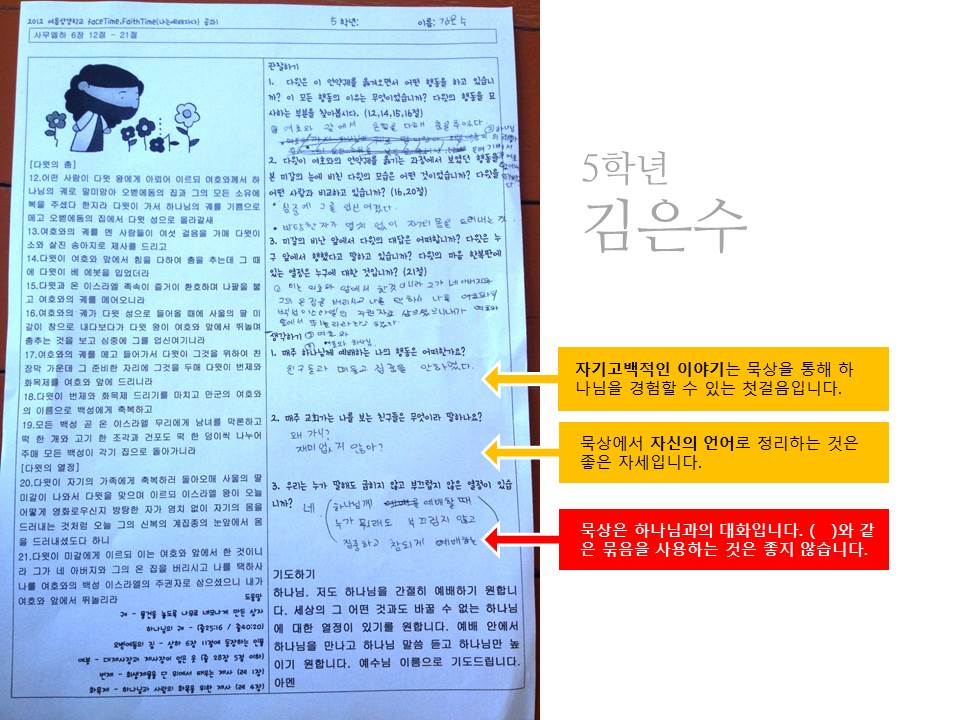 2012 여름성경학교 faceTime,FaithTime(나는예배자다) 공과1
5 학년: 이름: 김은수
사무엘하 6장 12절 - 21절
[다윗의 춤]
12.어떤 사람이 다윗 왕에게 아뢰어 이르되 여호와께서 하
나님의 궤로 말미암아 오벧에돔의 집과 그의 모든 소유에
복을 주셨다 한지라 다윗이 가서 하나님의 궤를 기쁨으로
메고 오벧에돔의 집에서 다윗 성으로 올라갈새
13.여호와의 궤를 멘 사람들이 여섯 걸음을 가매 다윗이
소와 살진 송아지로 제사를 드리고
14.다윗이 여호와 앞에서 힘을 다하여 춤을 추는데 그 때
에 다윗이 베 에봇을 입었더라
15.다윗과 온 이스라엘 족속이 즐거이 환호하며 나팔을 불
고 여호와의 궤를 메어오니라
16.여호와의 궤가 다윗 성으로 들어올 때에 사울의 딸 미
갈이 창으로 내다보다가 다윗 왕이 여호와 앞에서 뛰놀며
춤추는 것을 보고 심중에 그를 업신여기니라
17.여호와의 궤를 메고 들어가서 다윗이 그것을 위하여 친
장막 가운데 그 준비한 자리에 그것을 두매 다윗이 번제와
화목제를 여호와 앞에 드리니라
18.다윗이 번제와 화목제 드리기를 마치고 만군의 여호와
의 이름으로 백성에게 축복하고
19.모든 백성 곧 온 이스라엘 무리에게 남녀를 막론하고
떡 한 개와 고기 한 조각과 건포도 떡 한 덩이씩 나누어
주매 모든 백성이 각기 집으로 돌아가니라
[다윗의 열정]
20.다윗이 자기의 가족에게 축복하러 돌아오매 사울의 딸
미갈이 나와서 다윗을 맞으며 이르되 이스라엘 왕이 오늘
어떻게 영화로우신지 방탕한 자가 염치 없이 자기의 몸을
드러내는 것처럼 오늘 그의 신복의 계집종의 눈앞에서 몸
을 드러내셨도다 하니
21.다윗이 미갈에게 이르되 이는 여호와 앞에서 한 것이니
라 그가 네 아버지와 그의 온 집을 버리시고 나를 택하사
나를 여호와의 백성 이스라엘의 주권자로 삼으셨으니 내가
여호와 앞에서 뛰놀리라
도움말
궤 - 물건을 넣도록 나무로 네모나게 만든 상자
하나님의 궤 - (출25:16 / 출40:20)
오벧에돔의 집 - 삼하 6장 11절에 등장하는 인물
에봇 - 대제사장과 제사장이 입은 옷 (출 28장 5절 이하)
번제 - 희생제물을 단 위에서 태우는 제사 (레 1장)
화목제 - 하나님과 사람의 화목을 위한 제사 (레 4장)
관찰하기
1. 다윗은 이 언약궤를 옮겨오면서 어떤 행동을 하고 있습니
까? 이 모든 행동의 이유는 무엇이었습니까? 다윗의 행동을 묘
사하는 부분을 찾아봅시다. (12,14,15,16절)
여호와 앞에서 온힘을 다해 춤을 추었다
2. 다윗이 여호와의 언약궤를 옮기는 과정에서 보였던 행동을
본 미갈의 눈에 비친 다윗의 모습은 어떤 것이었습니까? 다윗을
어떤 사람과 비교하고 있습니까? (16,20절)
• 심중에 그를 업신여겼다.
• 방탕한 자가 염치 없이 자기의 몸을 드러내는 것
3. 미갈의 비난 앞에서 다윗의 대답은 어떠합니까? 다윗은 누
구 앞에서 행했다고 말하고 있습니까? 다윗의 마음 한복판에
있는 열정은 누구에 대한 것입니까? (21절)
① 이는 여호와 앞에서 한것이니라 그가 네 아버지와
그의 온 집을 버리시고 나를 택하사 나를 여호와의
백성 이스라엘의 주권자로 삼으셨으니 내가 여호와
앞에서 뛰놀리라
생각하기 ② 여호와
③ 여호와 하나님
1. 매주 하나님께 예배하는 나의 행동은 어떠한가요?
친구들과 떠들고 집중을 안하였다.
2. 매주 교회가는 나를 보는 친구들은 무엇이라 말하나요?
왜 가니?
재미없지 않아?
3. 우리는 누가 말해도 굽히지 않고 부끄럽지 않은 열정이 있습
니까? 네. (하나님께 예배할 때
누가 뭐래도 부끄럽지 않고
집중하고 참되게 예배하는
기도하기
하나님. 저도 하나님을 간절히 예배하기 원합니
다. 세상의 그 어떤 것과도 바꿀 수 없는 하나님
에 대한 열정이 있기를 원합니다. 예배 안에서
하나님을 만나고 하나님 말씀 듣고 하나님만 높
이기 원합니다. 예수님 이름으로 기도드립니다.
아멘
5학년
김은수
자기고백적인 이야기는 묵상을 통해 하
나님을 경험할 수 있는 첫걸음입니다.
묵상에서 자신의 언어로 정리하는 것은
좋은 자세입니다.
묵상은 하나님과의 대화입니다. ( )와 같
은 묶음을 사용하는 것은 좋지 않습니다.